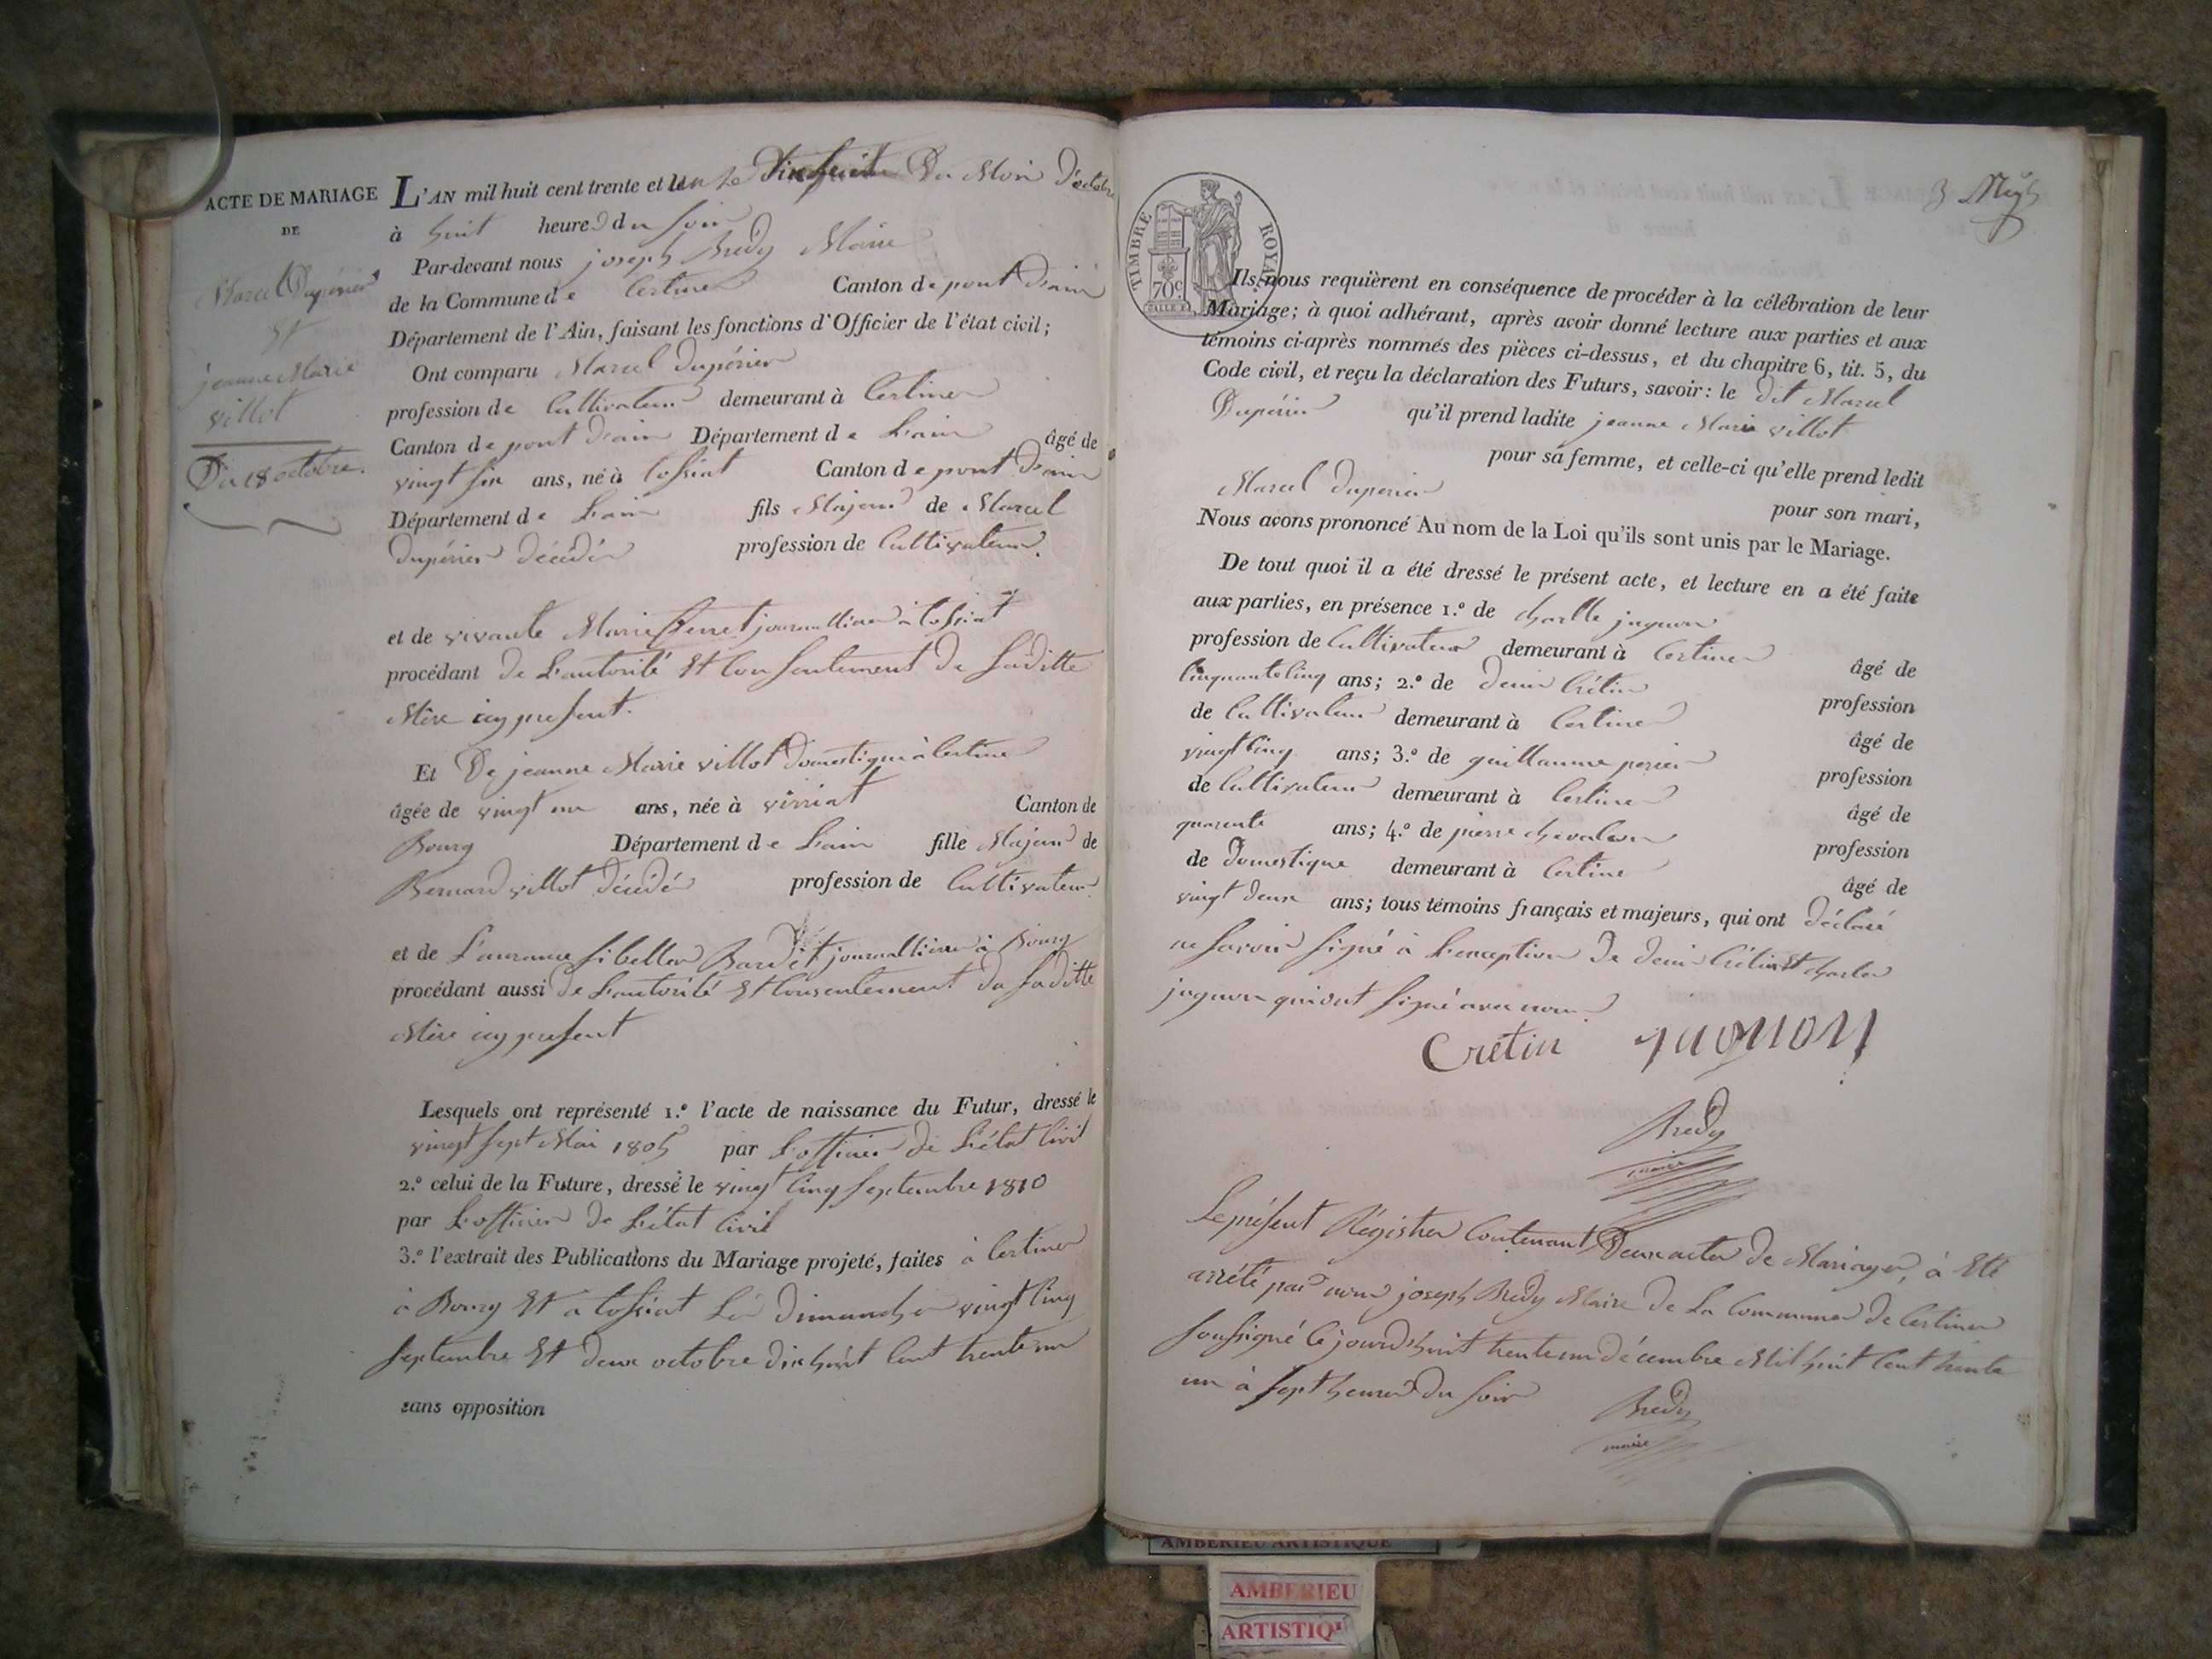 ACTE DE MARIAGE
DE
Marcel Dupérier
Et
jeanne Marie
villot
Du 18 octobre.
L'AN mil huit cent trente et un le Dixhuit Du Mois D'octobre
à huit heures du soir
Par-devant nous joseph Bredy Maire
de la Commune de Certines Canton de pont D'ain
Département de l'Ain, faisant les fonctions d'Officier de l'état civil;
Ont comparu Marcel Dupérier
profession de Cultivateur demeurant à Certines
Canton de pont D'ain Département de L'ain âgé de
vingt six ans, né à tossiat Canton de pont D'ain
Département de L'ain fils Majeur de Marcel
Dupérier décédér profession de Cultivateur.
et de vivante Marie journallière à tossiat
procédant de L'autorité Et Consentement de saditte
Mère icy present.
Et De jeanne Marie villot Domestique à Certines
âgée de vingt un ans, née à virriat Canton de
Bourg Département de L'ain fille Majeur de
Bernard villot décédér profession de Cultivateur
et de journallière à Bourg
procédant aussi de L'autorité Et Consentement de saditte
Mère icy present
Lesquels ont représenté 1.º l'acte de naissance du Futur, dressé le
vingt sept Mai 1805 par L'officier de L'état Civil
2.º celui de la Future, dressé le vingt Cinq septembre 1810
par L'officier de L'état Civil
3.º l'extrait des Publications du Mariage projeté, faites à Certines
à Bourg Et a tossiat Les Dimanche vingt Cinq
septembre Et deux octobre dixhuit Cent trente un
sans opposition
3
TIMBRE ROYAL
70c
Ils nous requièrent en conséquence de procéder à la célébration de leur
Mariage; à quoi adhérant, après avoir donné lecture aux parties et aux
témoins ci-après nommés des pièces ci-dessus, et du chapitre 6, tit. 5, du
Code civil, et reçu la déclaration des Futurs, savoir: le dit Marcel
Dupérier qu'il prend ladite jeanne Marie villot
pour sa femme, et celle-ci qu'elle prend ledit
Marcel Duperier pour son mari,
Nous avons prononcé Au nom de la Loi qu'ils sont unis par le Mariage.
De tout quoi il a été dressé le présent acte, et lecture en a été faite
aux parties, en présence 1.º de charlle juguon
profession de Cultivateur demeurant à Certines âgé de
Cinquante Cinq ans; 2.º de denis Crétin profession
de Cultivateur demeurant à Certines âgé de
vingt Cinq ans; 3.º de guillaume perier profession
de Cultivateur demeurant à Certines âgé de
quarente ans; 4.º de pierre profession
de Domestique demeurant à Certines âgé de
vingt deux ans; tous témoins français et majeurs, qui ont déclaré
ne savoir signé à L'exception De denis Crétin Et charles
juguon qui ont signé avec nous
Cretin juguon
Bredy
maire
Le présent Régistre Contenant Deux actes de Mariages, à Eté
arrêté par nous joseph Bredy Maire de La Commune de Certines
soussigné Cejourd'huit trente un décembre Mil huit Cent trente
un à sept heures du soir
Bredy
maire
AMBERIEU ARTISTIQUE
AMBERIEU
ARTISTIQ